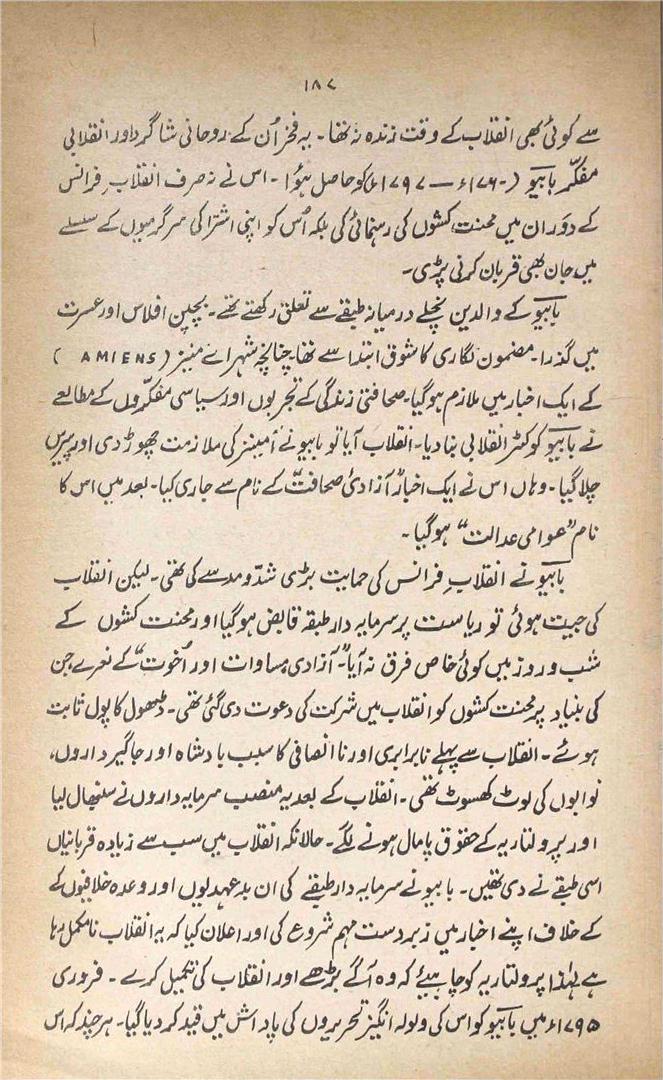 ۱۸۷
سے کوئی بھی انقلاب کے وقت زندہ نہ تھا۔ یہ فخر اُن کے روحانی شاگرد اور انقلابی
مفکّر بابیو (۱۷۶۰ء — ۱۷۹۷ء) کو حاصل ہوُا۔ اس نے نہ صرف انقلابِ فرانس
کے دَوران میں محنت کشوں کی رہنمائی کی بلکہ اُس کو اپنی اشتراکی سرگرمیوں کے سلسلے
میں جان بھی قربان کرنی پڑی۔
بابیو کے والدین نچلے درمیانہ طبقے سے تعلق رکھتے تھے۔ بچپن افلاس اور عسرت
میں گذرا۔ مضمون نگاری کا شوق ابتدا سے تھا۔ چنانچہ شہر اے مینیز (AMIENS)
کے ایک اخبار میں ملازم ہو گیا۔ صحافتی زندگی کے تجربوں اور سیاسی مفکّروں کے مطالعے
نے بابیو کو کٹر انقلابی بنا دیا۔ انقلاب آیا تو بابیو نے اُمینز کی ملازمت چھوڑ دی اور پیرس
چلا گیا۔ وہاں اس نے ایک اخبار "آزادیٔ صحافت" کے نام سے جاری کیا۔ بعد میں اس کا
نام "عوامی عدالت" ہو گیا۔
بابیو نے انقلابِ فرانس کی حمایت بڑی شدّومد سے کی تھی۔ لیکن انقلاب
کی جیت ہوئی تو ریاست پر سرمایہ دار طبقہ قابض ہو گیا اور محنت کشوں کے
شب و روز میں کوئی خاص فرق نہ آیا۔ "آزادی، مساوات اور اُخوت" کے نعرے جن
کی بنیاد پر محنت کشوں کو انقلاب میں شرکت کی دعوت دی گئی تھی۔ ڈھول کا پول ثابت
ہوئے۔ انقلاب سے پہلے نابرابری اور ناانصافی کا سبب بادشاہ اور جاگیرداروں،
نوابوں کی لوٹ کھسوٹ تھی۔ انقلاب کے بعد یہ منصب سرمایہ داروں نے سنبھال لیا
اور پرولتاریہ کے حقوق پامال ہونے لگے۔ حالانکہ انقلاب میں سب سے زیادہ قربانیاں
اسی طبقے نے دی تھیں۔ بابیو نے سرمایہ دار طبقے کی ان بدعہدیوں اور وعدہ خلافیوں کے
کے خلاف اپنے اخبار میں زبردست مہم شروع کی اور اعلان کیا کہ یہ انقلاب نامکمل رہا
ہے لہٰذا پرولتاریہ کو چاہیئے کہ وہ آگے بڑھے اور انقلاب کی تکمیل کرے۔ فروری
۱۷۹۵ء میں بابیو کو اس کی ولولہ انگیز تحریروں کی پاداش میں قید کر دیا گیا۔ ہر چند کہ اس